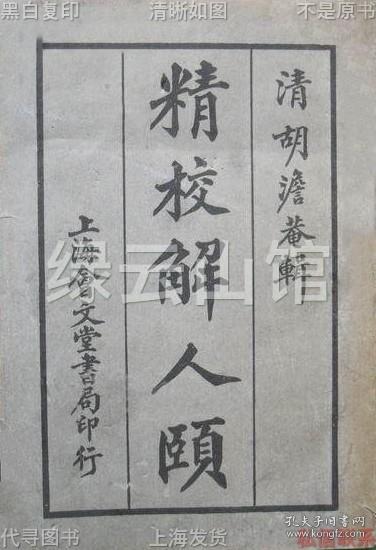 黑白复印 清晰如图 不是原书
清胡澹菴輯
精校解人頤
上海會文堂書局印行
绿云山馆
代寻图书 上海发货
孔夫子旧书网
www.kongfz.com